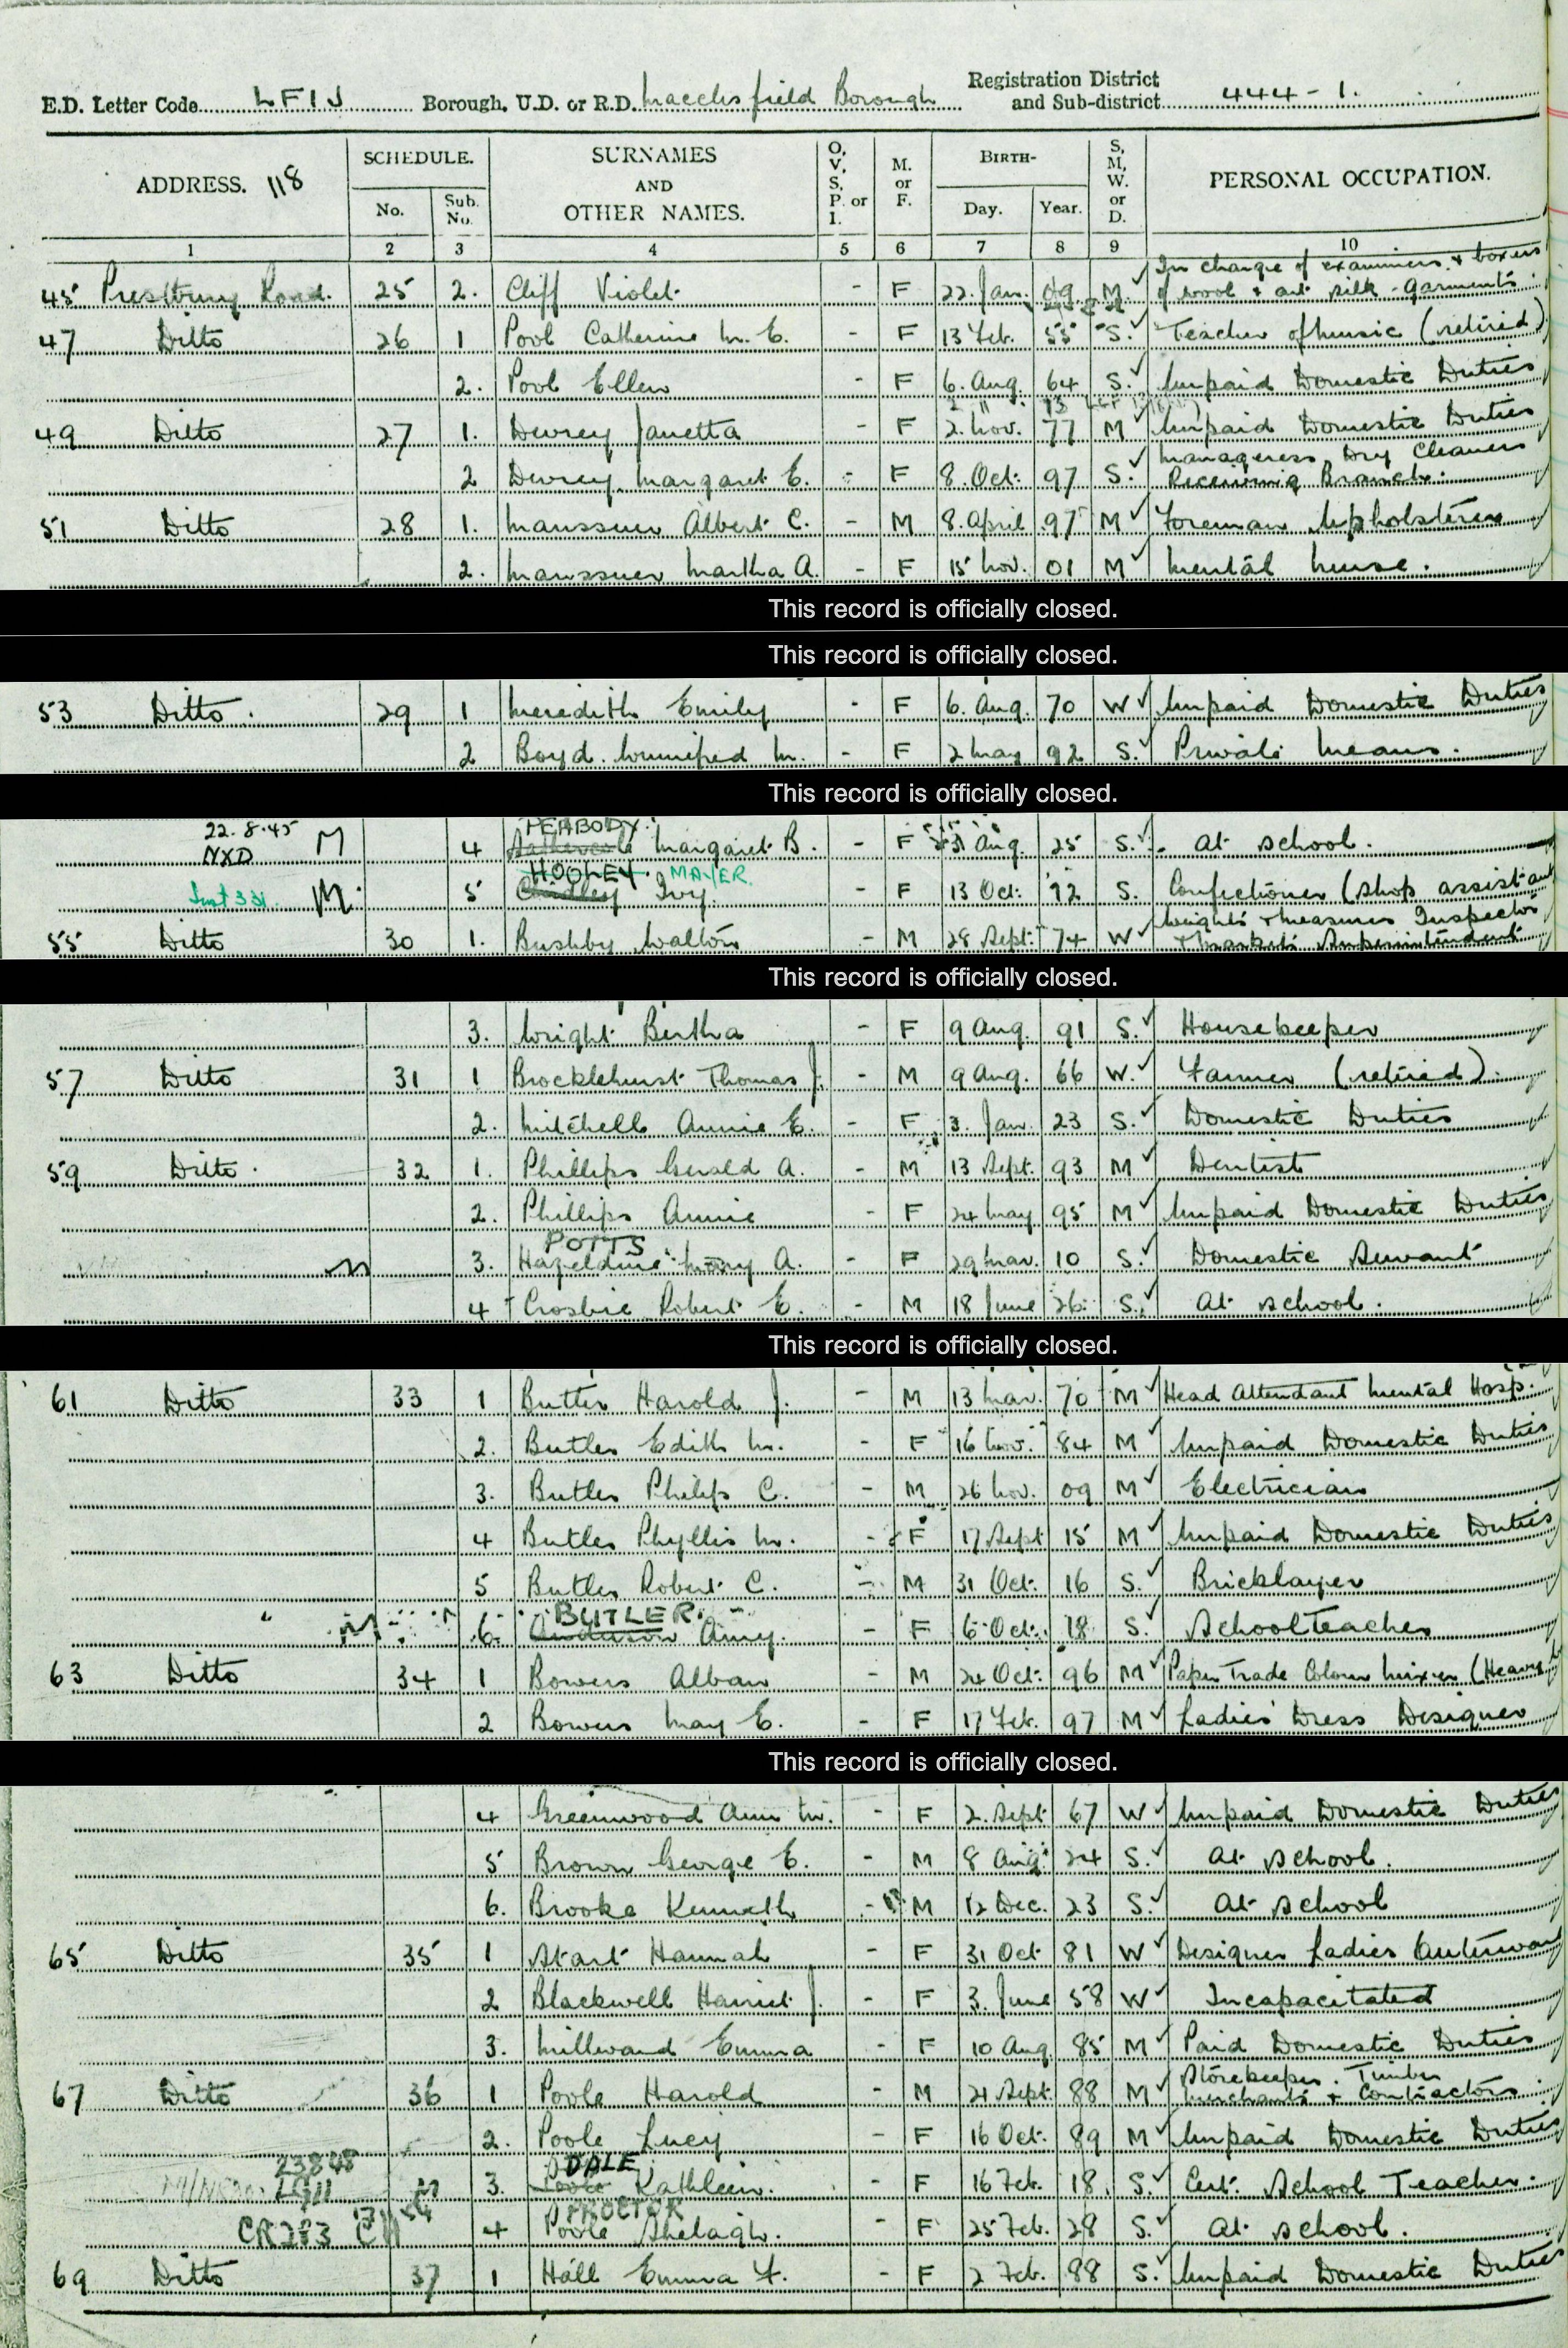 E.D. Letter Code LFIJ Borough, U.D. or R.D. Macclesfield Borough Registration District and Sub-district 444-1.
ADDRESS. 118 SCHEDULE. No. Sub. No. SURNAMES AND OTHER NAMES. O, V, S, P. or I. M. or F. BIRTH- Day. Year. S, M, W. or D. PERSONAL OCCUPATION.
1 2 3 4 5 6 7 8 9 10
45 Prestbury Road. 25 2. Cliff Violet - F 22. Jan. 09 M. In charge of examiners & boxers of wool & art silk garments
47 Ditto 26 1 Pool Catherine M. E. - F 13 Feb. 55 S. Teacher of music (retired)
2. Pool Ellen - F 6. Aug. 64 S. Unpaid Domestic Duties
49 Ditto 27 1. Devrey Janetta - F 2. Nov. 77 M Unpaid Domestic Duties
2 Devrey Margaret E. - F 8. Oct. 97 S. Manageress Dry Cleaners Receiving Branch.
51 Ditto 28 1. Manssuer Albert C. - M 8. April 97 M Foreman Upholsterer
2. Manssuer Martha A. - F 15 Nov. 01 M Mental Nurse.
This record is officially closed.
This record is officially closed.
53 Ditto. 29 1 Meredith Emily - F 6. Aug. 70 W Unpaid Domestic Duties
2 Boyd. Winnifred M. - F 2 May 92 S. Private Means.
This record is officially closed.
22.8.45 NXD M 4 PEABODY Margaret B. - F 31 Aug. 25 S. At school.
M. 5 HOOLEY. MAYER. Ivy. - F 13 Oct. 12 S. Confectioner (shop assistant
55 Ditto 30 1. Bushby Walton - M 28 Sept. 74 W Weights & Measures Inspector & Markets Superintendent
This record is officially closed.
3. Wright Bertha - F 9 Aug. 91 S. Housekeeper
57 Ditto 31 1 Brocklehurst Thomas J. - M 9 Aug. 66 W. Farmer (retired).
2. Mitchell Annie E. - F 3. Jan. 23 S. Domestic Duties
59 Ditto. 32 1. Phillips Gerald A. - M 13 Sept. 93 M Dentist
2. Phillips Annie - F 24 May 95 M Unpaid Domestic Duties
POTTS
M 3. Hazeldine Mary A. - F 29 Mar. 10 S. Domestic Servant
4 Crosbie Robert E. - M 18 June 26 S. At school.
This record is officially closed.
61 Ditto 33 1 Butler Harold J. - M 13 Mar. 70 M Head Attendant Mental Hosp.
2. Butler Edith M. - F 16 Nov. 84 M Unpaid Domestic Duties
3. Butler Philip C. - M 26 Nov. 09 M Electrician
4 Butler Phyllis M. - F 17 Sept 15 M Unpaid Domestic Duties
5 Butler Robert C. - M 31 Oct. 16 S. Bricklayer
BUTLER.
M 6. Anderson Amy. - F 6 Oct. 18 S. School teacher
63 Ditto 34 1 Bowers Alban - M 24 Oct. 96 M Paper Trade Colour Mixer (Heavy
2 Bowers May E. - F 17 Feb. 97 M Ladies' Dress Designer
This record is officially closed.
4 Greenwood Ann M. - F 2. Sept 67 W Unpaid Domestic Duties
5 Brown George E. - M 8 Aug. 24 S. At school.
6. Brooke Kenneth - M 12 Dec. 23 S. At school
65 Ditto 35 1 Start Hannah - F 31 Oct 81 W Designer Ladies Outerwear
2 Blackwell Harriet J. - F 3. June 58 W Incapacitated
3. Millward Emma - F 10 Aug. 85 M Paid Domestic Duties
67 Ditto 36 1 Poole Harold - M 21 Sept. 88 M Storekeeper. Timber Merchants & Contractors
2. Poole Lucy - F 16 Oct. 89 M Unpaid Domestic Duties
23848 DALE
M 3. Poole Kathleen. - F 16 Feb. 18. S. Cert. School Teacher.
PROCTOR
CR283 CH 4 Poole Shelagh. - F 25 Feb. 28 S. At school.
69 Ditto 37 1 Hall Emma F. - F 2 Feb. 88 S. Unpaid Domestic Duties